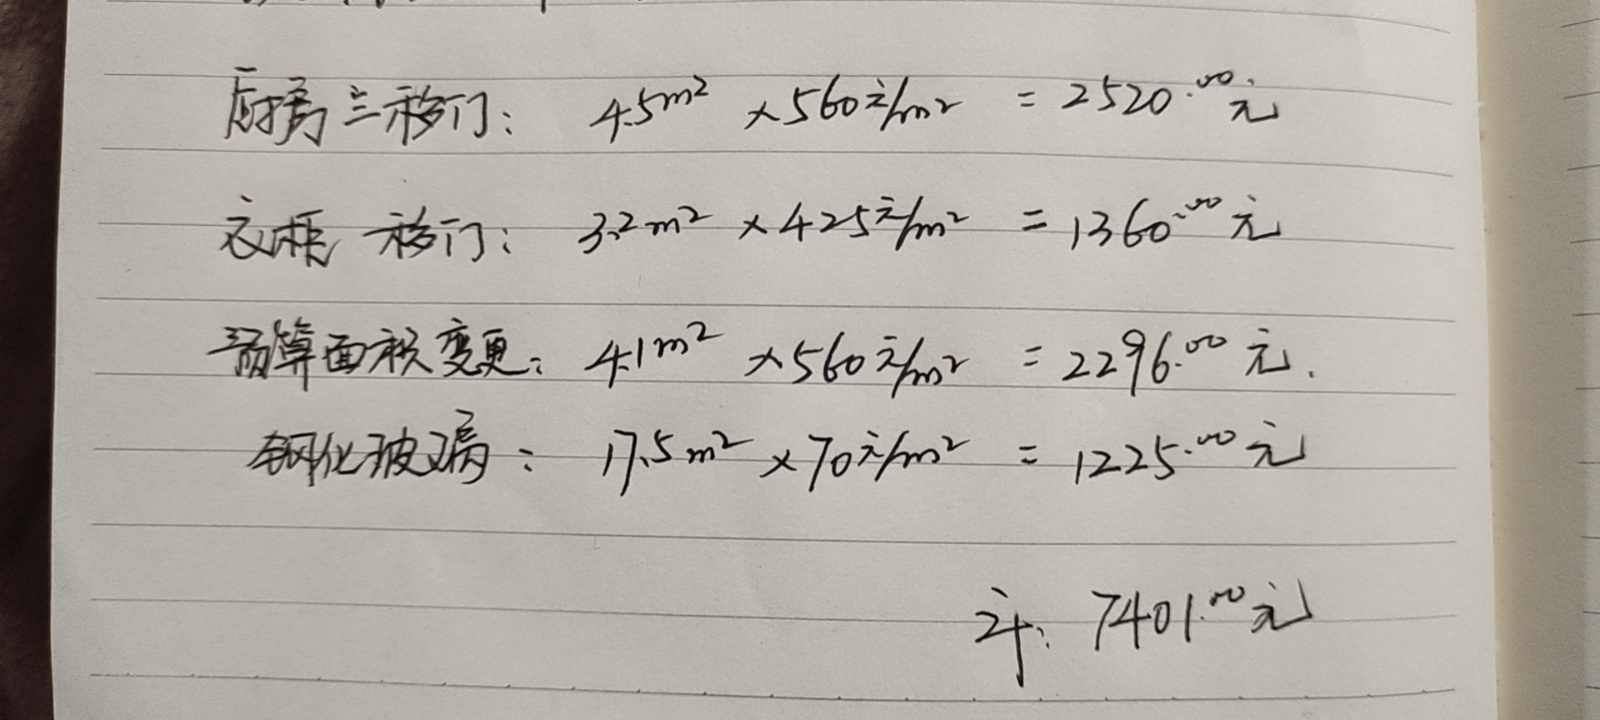 厨房三移门: 4.5m² ×560元/m² =2520.00元
衣柜 移门: 3.2m² ×425元/m² =1360.00元
预算面积变更: 4.1m² ×560元/m² =2296.00元.
钢化玻璃: 17.5m² ×70元/m² =1225.00元
计: 7401.00元